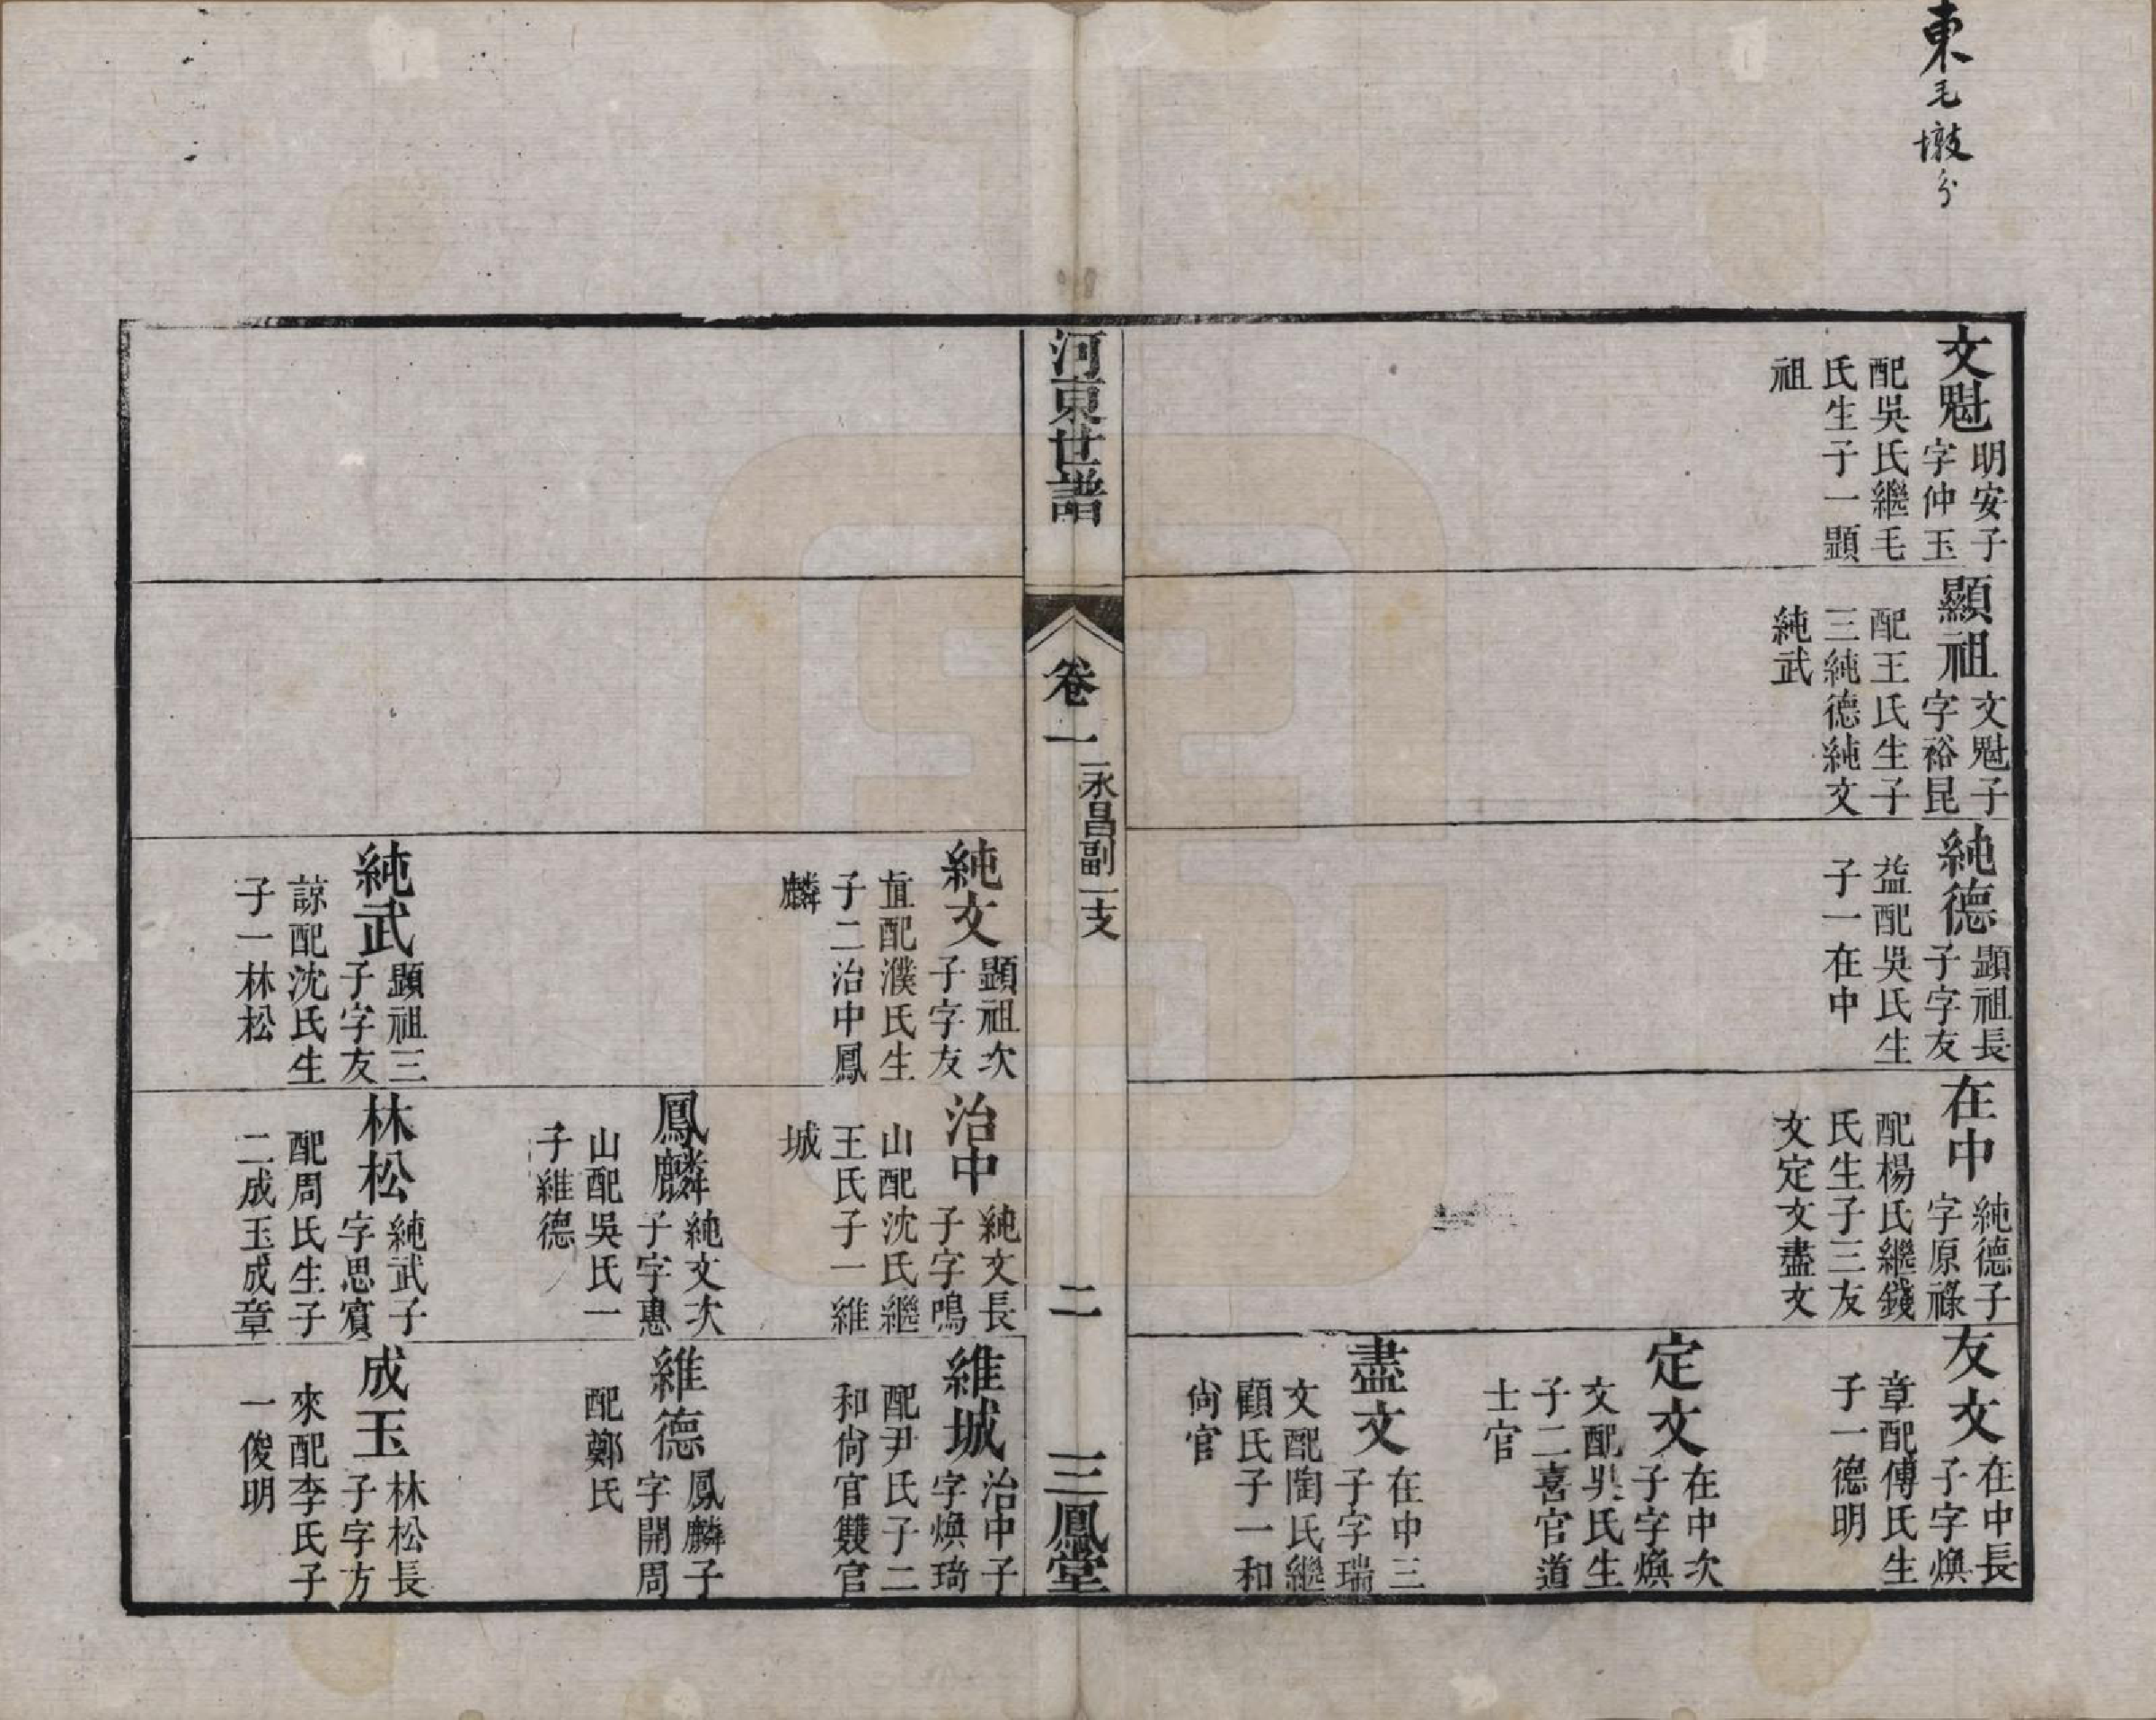 東毛墩分
文魁
明安子
字仲玉
配吳氏繼毛
氏生子一顯
祖
顯祖
文魁子
字裕昆
配王氏生子
三純德純文
純武
純德
顯祖長
子字友
益配吳氏生
子一在中
在中
純德子
字原祿
配楊氏繼錢
氏生子三友
文定文盡文
友文
在中長
子字煥
章配傅氏生
子一德明
定文
在中次
子字煥
文配吳氏生
子二喜官道
士官
盡文
在中三
子字瑞
文配陶氏繼
顧氏子一和
尙官
河東世譜
卷一
永昌副一支
二
三鳳堂
純文
顯祖次
子字友
直配濮氏生
子二治中鳳
麟
治中
純文長
子字鳴
山配沈氏繼
王氏子一維
城
維城
治中子
字煥琦
配尹氏子二
和尙官雙官
鳳麟
純文次
子字惠
山配吳氏一
子維德
維德
鳳麟子
字開周
配鄭氏
純武
顯祖三
子字友
諒配沈氏生
子一林松
林松
純武子
字思賓
配周氏生子
二成玉成章
成玉
林松長
子字方
來配李氏子
一俊明